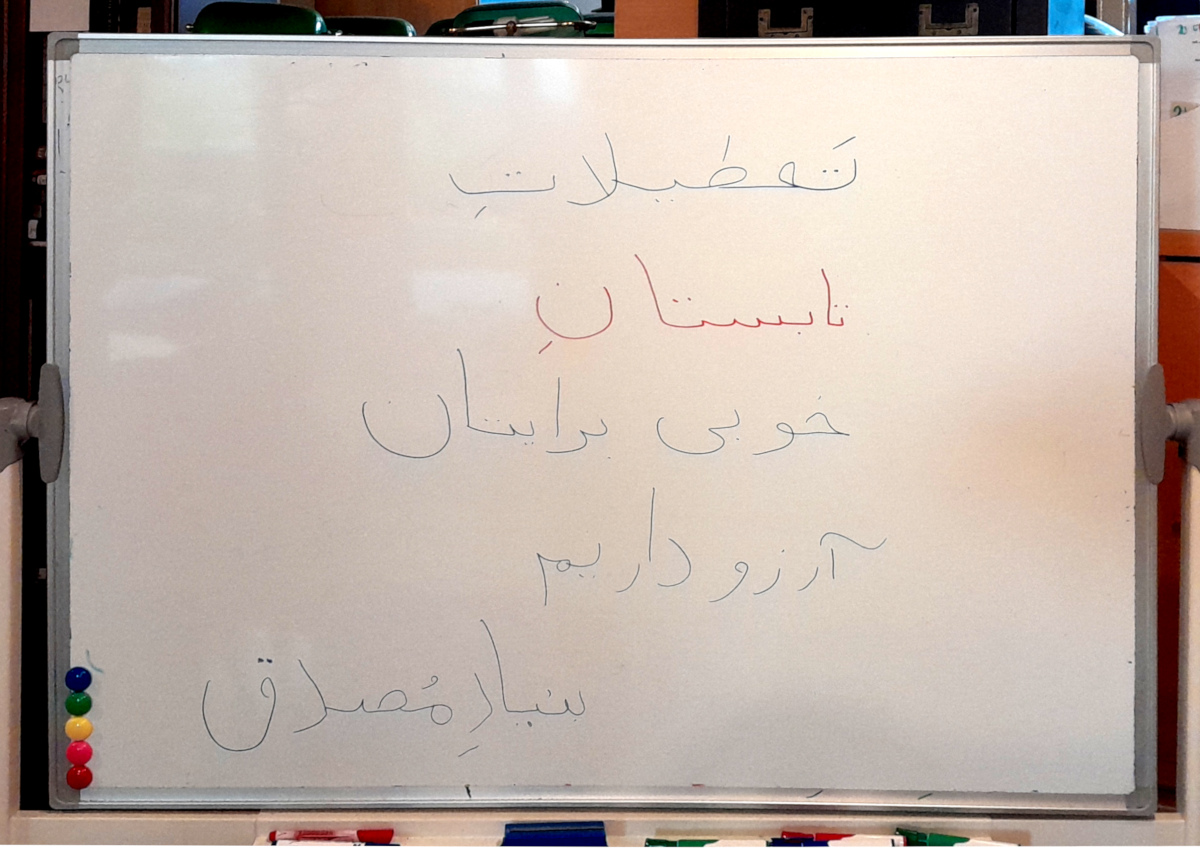 تَعطیلاتِ
تابستانِ
خوبی برایتان
آرزو داریم
بنیادِ مُصدق